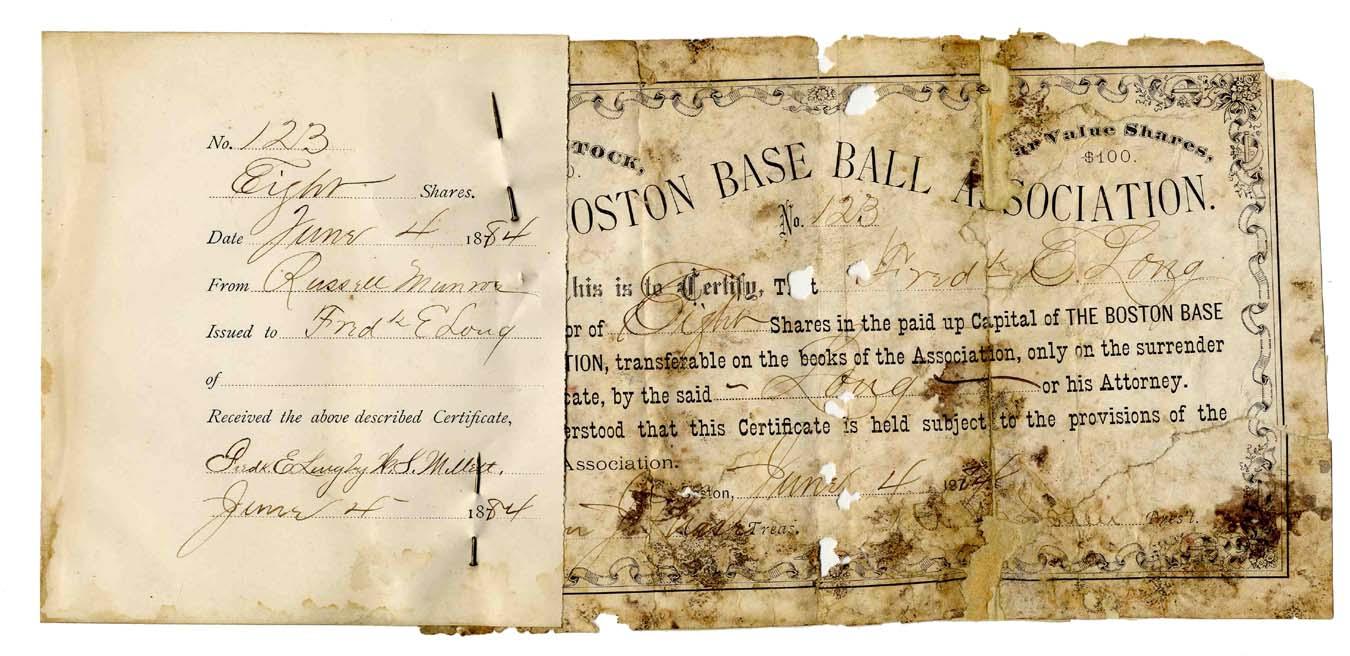 No. 123
Eight Shares.
Date June 4 1884
From Russell Munroe
Issued to Fredk E Long
of
Received the above described Certificate,
Fredk. E Long by W. S. Millett.
June 4 1884
TOCK,
Value Shares,
$100.
OSTON BASE BALL ASSOCIATION.
No. 123
his is to Certify, T t Fredk E Long
or of Eight Shares in the paid up Capital of THE BOSTON BASE
TION, transferable on the books of the Association, only on the surrender
cate, by the said Long or his Attorney.
erstood that this Certificate is held subject to the provisions of the
Association.
ston, June 4 1884
Treas.
Prest.